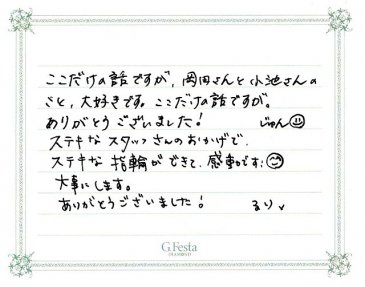 ここだけの話ですが、岡田さんと小池さんの
こと、大好きです。ここだけの話ですが。
ありがとうございました! じゅん
ステキなスタッフさんのおかげで、
ステキな指輪ができて、感動です!
大事にします。
ありがとうございました! るり
G.Festa
DIAMOND